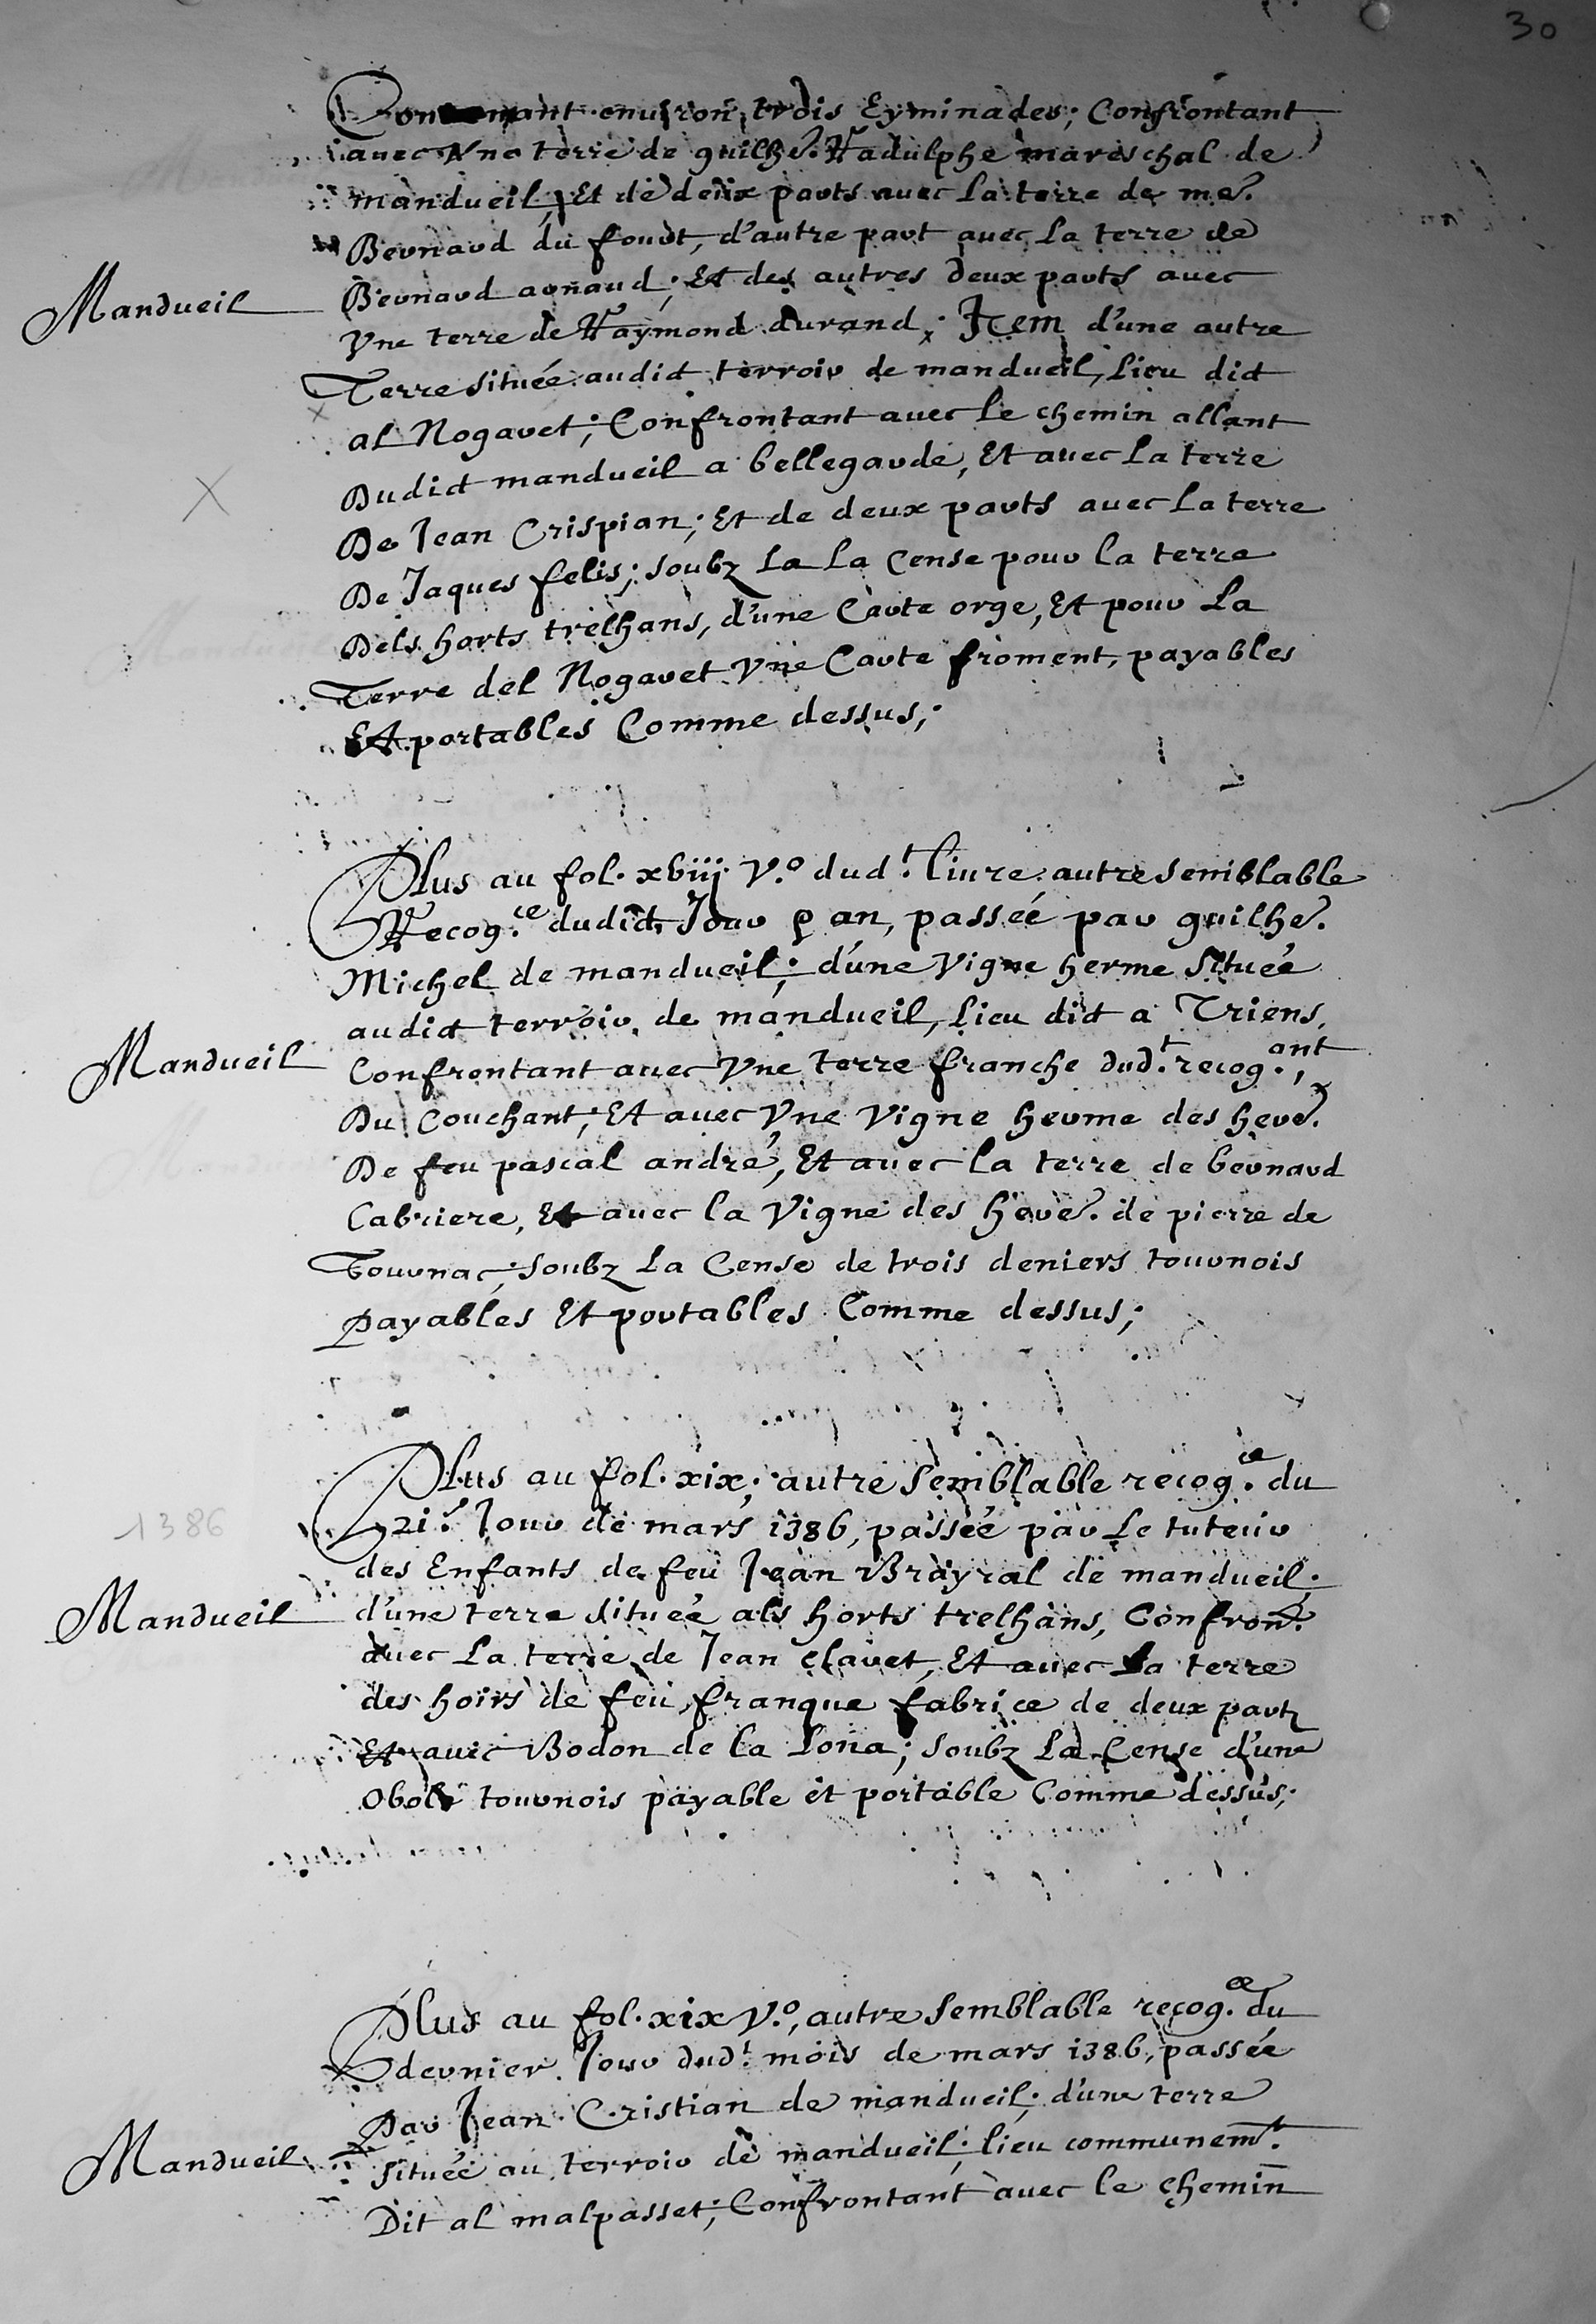 30
Contenant environ trois Eyminades; Confrontant
avec Vne terre de guilhe. Radulphe mareschal de
mandueil, Et de deux parts avec La terre de me.
Bernard du fourt, d'autre part avec La terre de
Bernard arnaud; Et des autres deux parts avec
Mandueil
Vne terre de Raymond durand; Item d'une autre
Terre située audict terroir de mandueil, Lieu dict
al Nogaret; Confrontant avec le chemin allant
Dudict mandueil a bellegarde, Et avec La terre
De Jean Crispian; Et de deux parts avec La terre
De Jaques felis; soubz La La Cense pour la terre
Dels horts trelhans, d'une Carte orge, Et pour La
Terre del Nogaret Vne Carte froment, payables
Et portables Comme dessus;
Plus au fol. xviij V.º dud.t livre autre semblable
Recog.ce dudict Jour & an, passéé par guilhe.
Michel de mandueil; d'une Vigne herme située
audict terroir de mandueil, Lieu dict a Triens,
Mandueil
Confrontant avec Vne terre franche dud.t recog.ant,
Du Couchant; Et avec Vne Vigne herme des here.
De feu pascal andré, Et avec la terre de bernard
Cabriere, Et avec la Vigne des here. de pierre de
Tournac; soubz La Cense de trois deniers tournois
payables Et portables Comme dessus;
Plus au fol. xix; autre semblable recog.ce du
1386
21.e Jour de mars 1386, passée par Le tuteur
des Enfants de feu Jean Brayral de mandueil;
Mandueil
d'une terre située als horts trelhans, Confront.
avec La terre de Jean claret, Et avec La terre
des hoirs de feu franque fabrice de deux partz
Et avec Bodon de la Lona; soubz La Cense d'une
Obole tournois payable et portable Comme dessus;
Plus au fol. xix V.º, autre semblable recog.ce du
dernier Jour dud.t mois de mars 1386, passée
Par Jean Cristian de mandueil; d'une terre
Mandueil
située au terroir de mandueil; lieu communem.t
Dit al malpasset; Confrontant avec le chemin